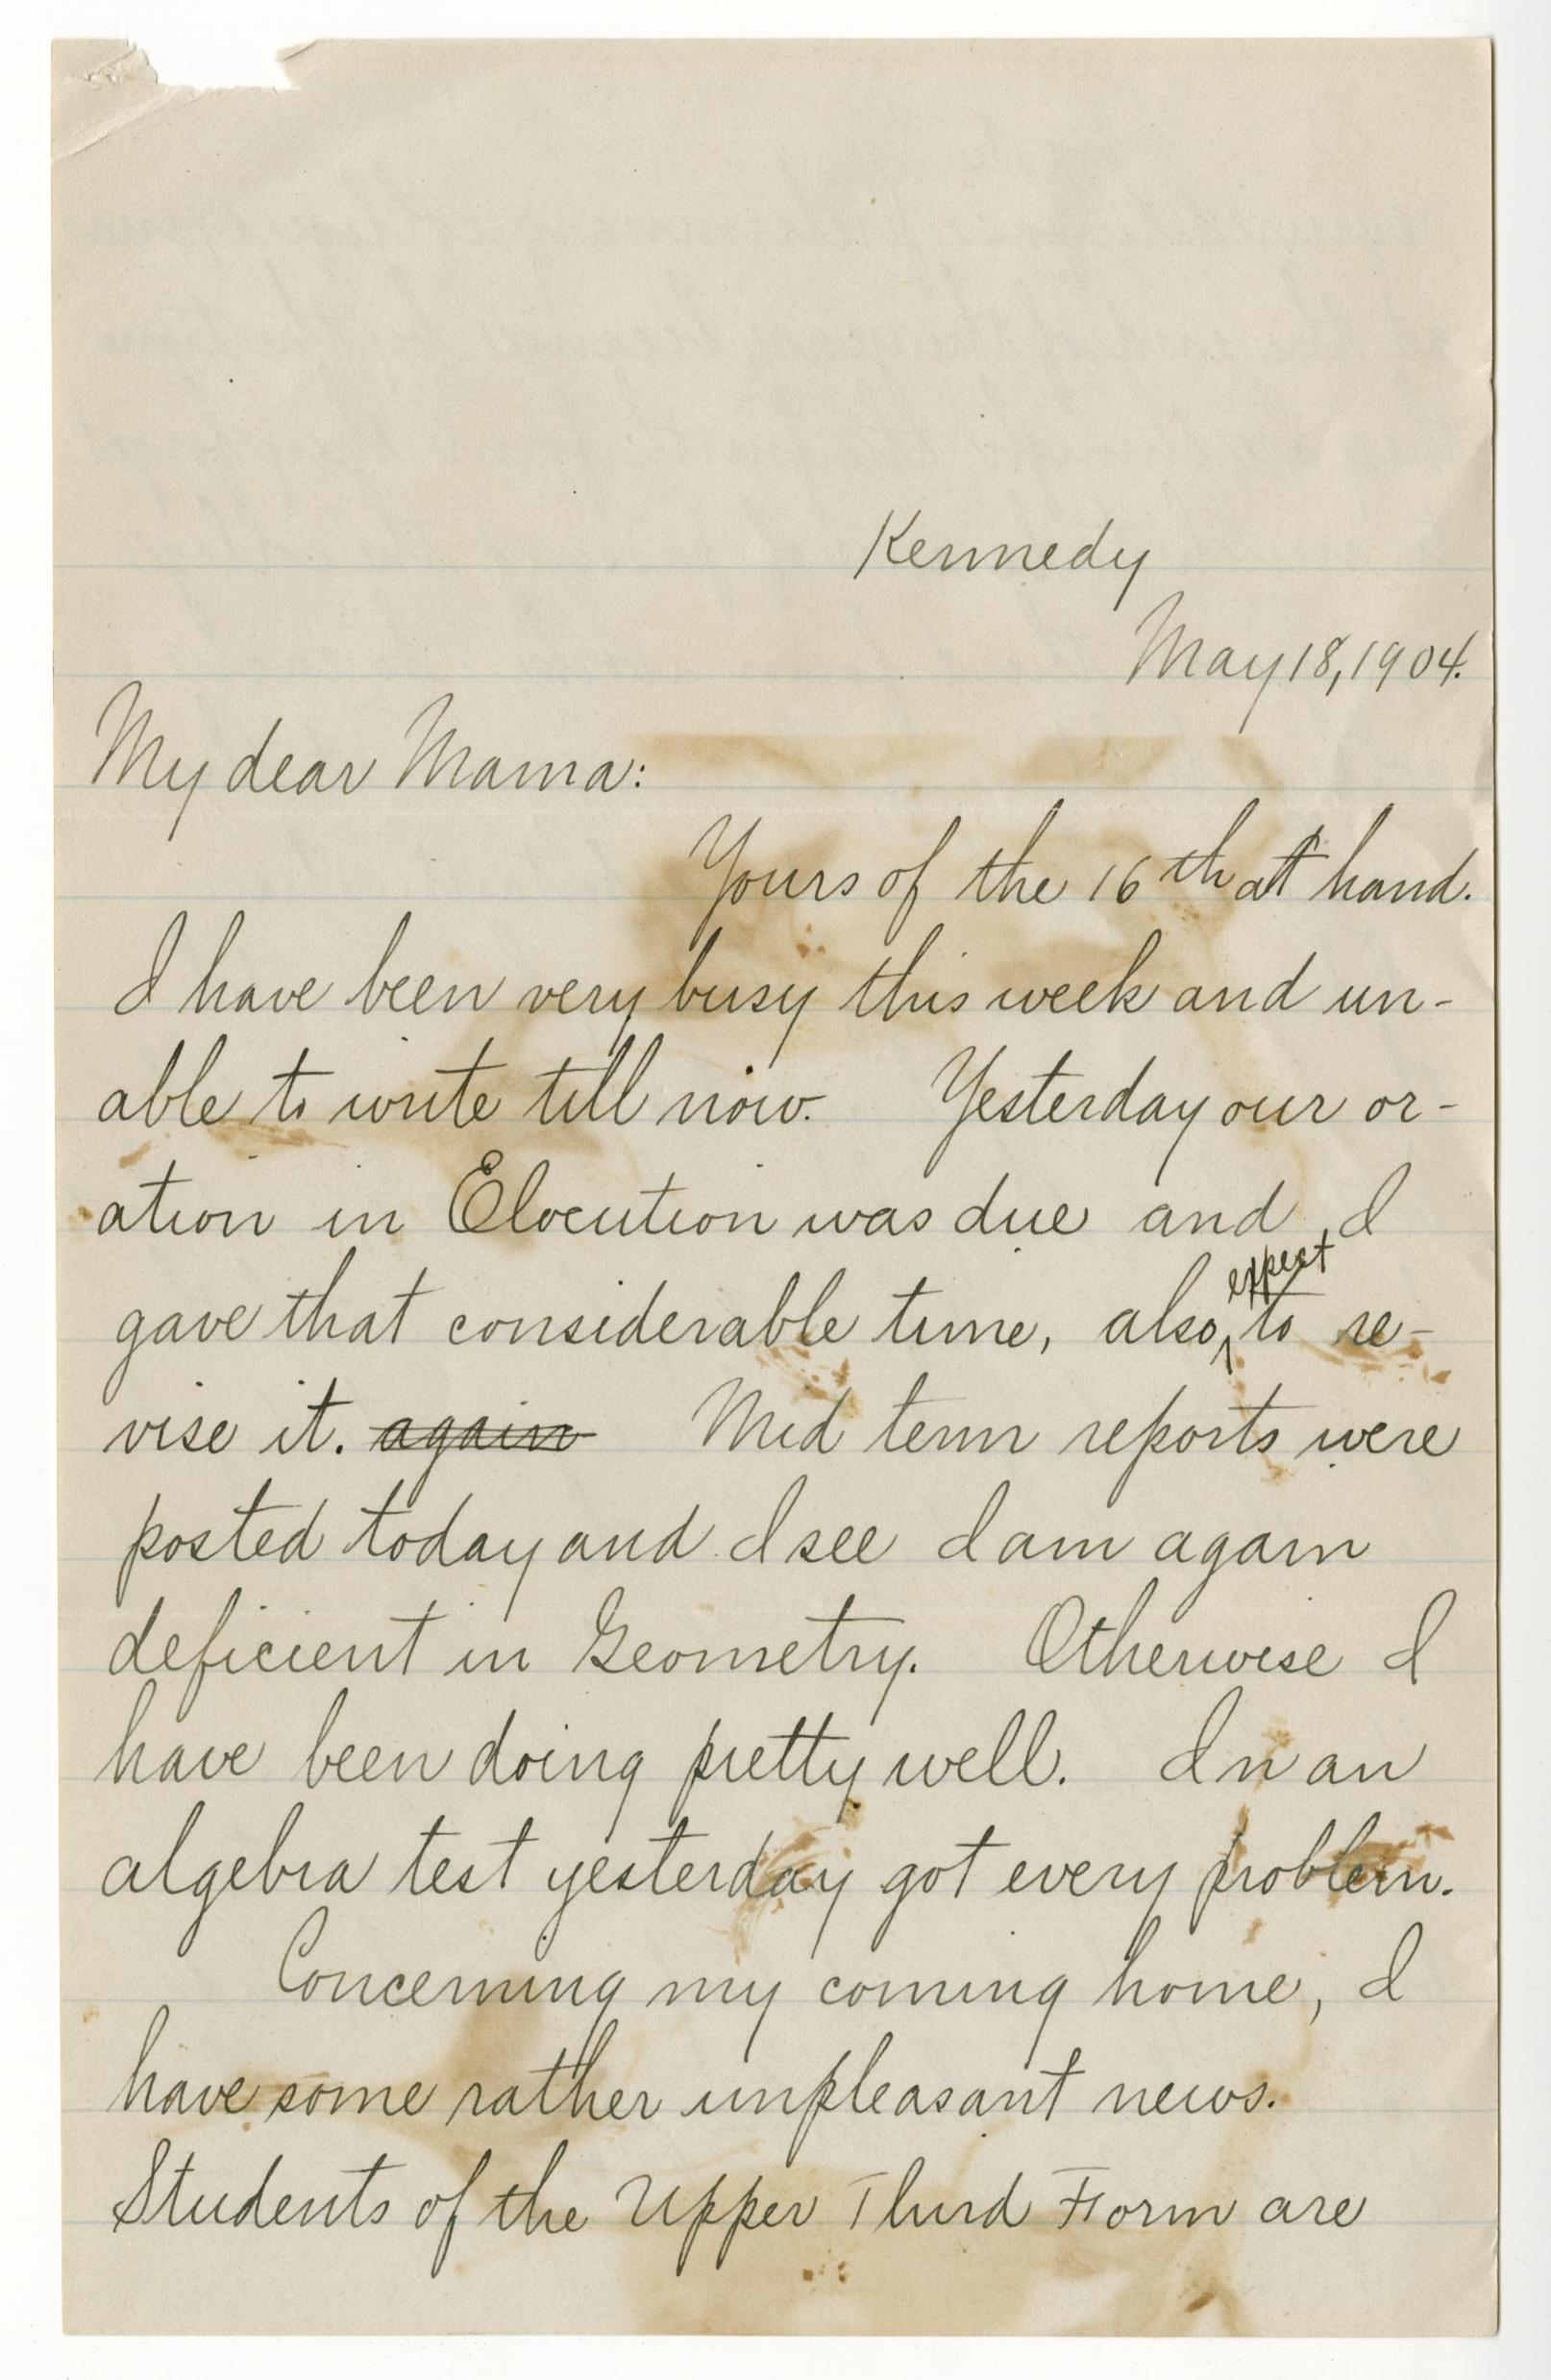 Kennedy
May 18, 1904.
My dear Mama:
Yours of the 16th at hand.
I have been very busy this week and un-
able to write till now. Yesterday our or-
ation in Elocution was due and I
gave that considerable time, also expect to re-
vise it. again Mid term reports were
posted today and I see I am again
deficient in Geometry. Otherwise I
have been doing pretty well. In an
algebra test yesterday got every problem.
Concerning my coming home, I
have some rather unpleasant news.
Students of the Upper Third Form are